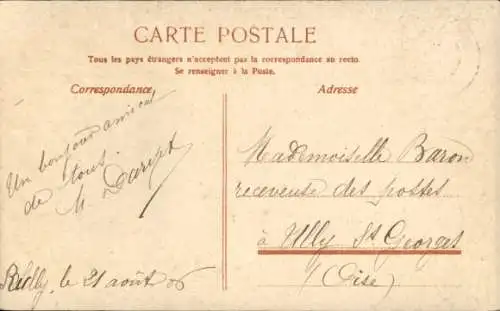 CARTE POSTALE
Tous les pays étrangers n'acceptent pas la correspondance au recto.
Se renseigner à la Poste.
Correspondance
Adresse
Un bonjour amical
de tous.
M.
Mademoiselle Baron
receveuse des postes
à Ully St Georges
(Oise)
le 21 août 06